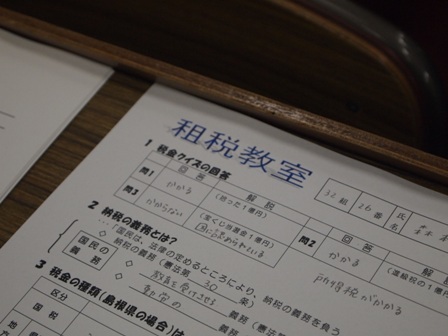 租税教室
32組 26番 氏名 森
1 税金クイズの回答
回答 解説
問1 かかる (拾った1億円)
問3 かからない (宝くじ当選金1億円)
問2 回答 かかる 解説
所得税がかかる
2 納税の義務とは?
…「国民は、法律の定めるところにより、納税の義務を負う
国民の義務
◇ 納税の義務(憲法第 30 条)
◇ 教育を受けさせる 義務(憲法
◇ 義務
3 税金の種類(島根県の場合)は
区分
国税
地